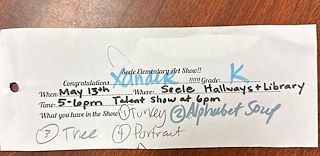 Seele Elementary Art Show!!
Congratulations Xander !!!!!! Grade: K
When: May 13th Where: Seele Hallways + Library
Time: 5-6pm Talent Show at 6pm
What you have in the Show: ① Turkey ② Alphabet Soup
③ Tree ④ Portrait